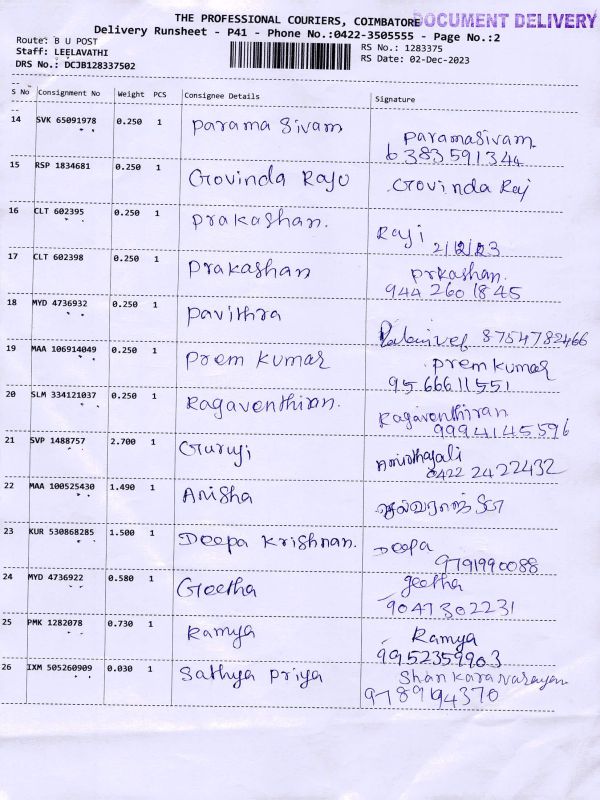 THE PROFESSIONAL COURIERS, COIMBATORE DOCUMENT DELIVERY
Delivery Runsheet - P41 - Phone No.:0422-3505555 - Page No.:2
Route: B U POST
Staff: LEELAVATHI
DRS No.: DCJB128337502
RS No.: 1283375
RS Date: 02-Dec-2023
S No Consignment No Weight PCS Consignee Details Signature
14 SVK 65091978 0.250 1 Parama Sivam Paramasivam
6383591344
15 RSP 1834681 0.250 1 Govinda Raju Govinda Raj
16 CLT 602395 0.250 1 Prakashan. Raji
2/12/23
17 CLT 602398 0.250 1 Prakashan Prkashan.
944 260 1845
18 MYD 4736932 0.250 1 Pavithra 8754782466
19 MAA 106914049 0.250 1 Prem Kumar Prem kumar
9566611551
20 SLM 334121037 0.250 1 Ragaventhiran. Ragaventhiran
9994145596
21 SVP 1488757 2.700 1 Guruji
0422 2422432
22 MAA 100525430 1.490 1 Anisha
23 KUR 530868285 1.500 1 Deepa Krishnan. Deepa
9791990088
24 MYD 4736922 0.580 1 Geetha geetha
9047302231
25 PMK 1282078 0.730 1 Ramya Ramya
9952359903
26 IXM 505260909 0.030 1 Sathya Priya Shankaranarayan
9789194370